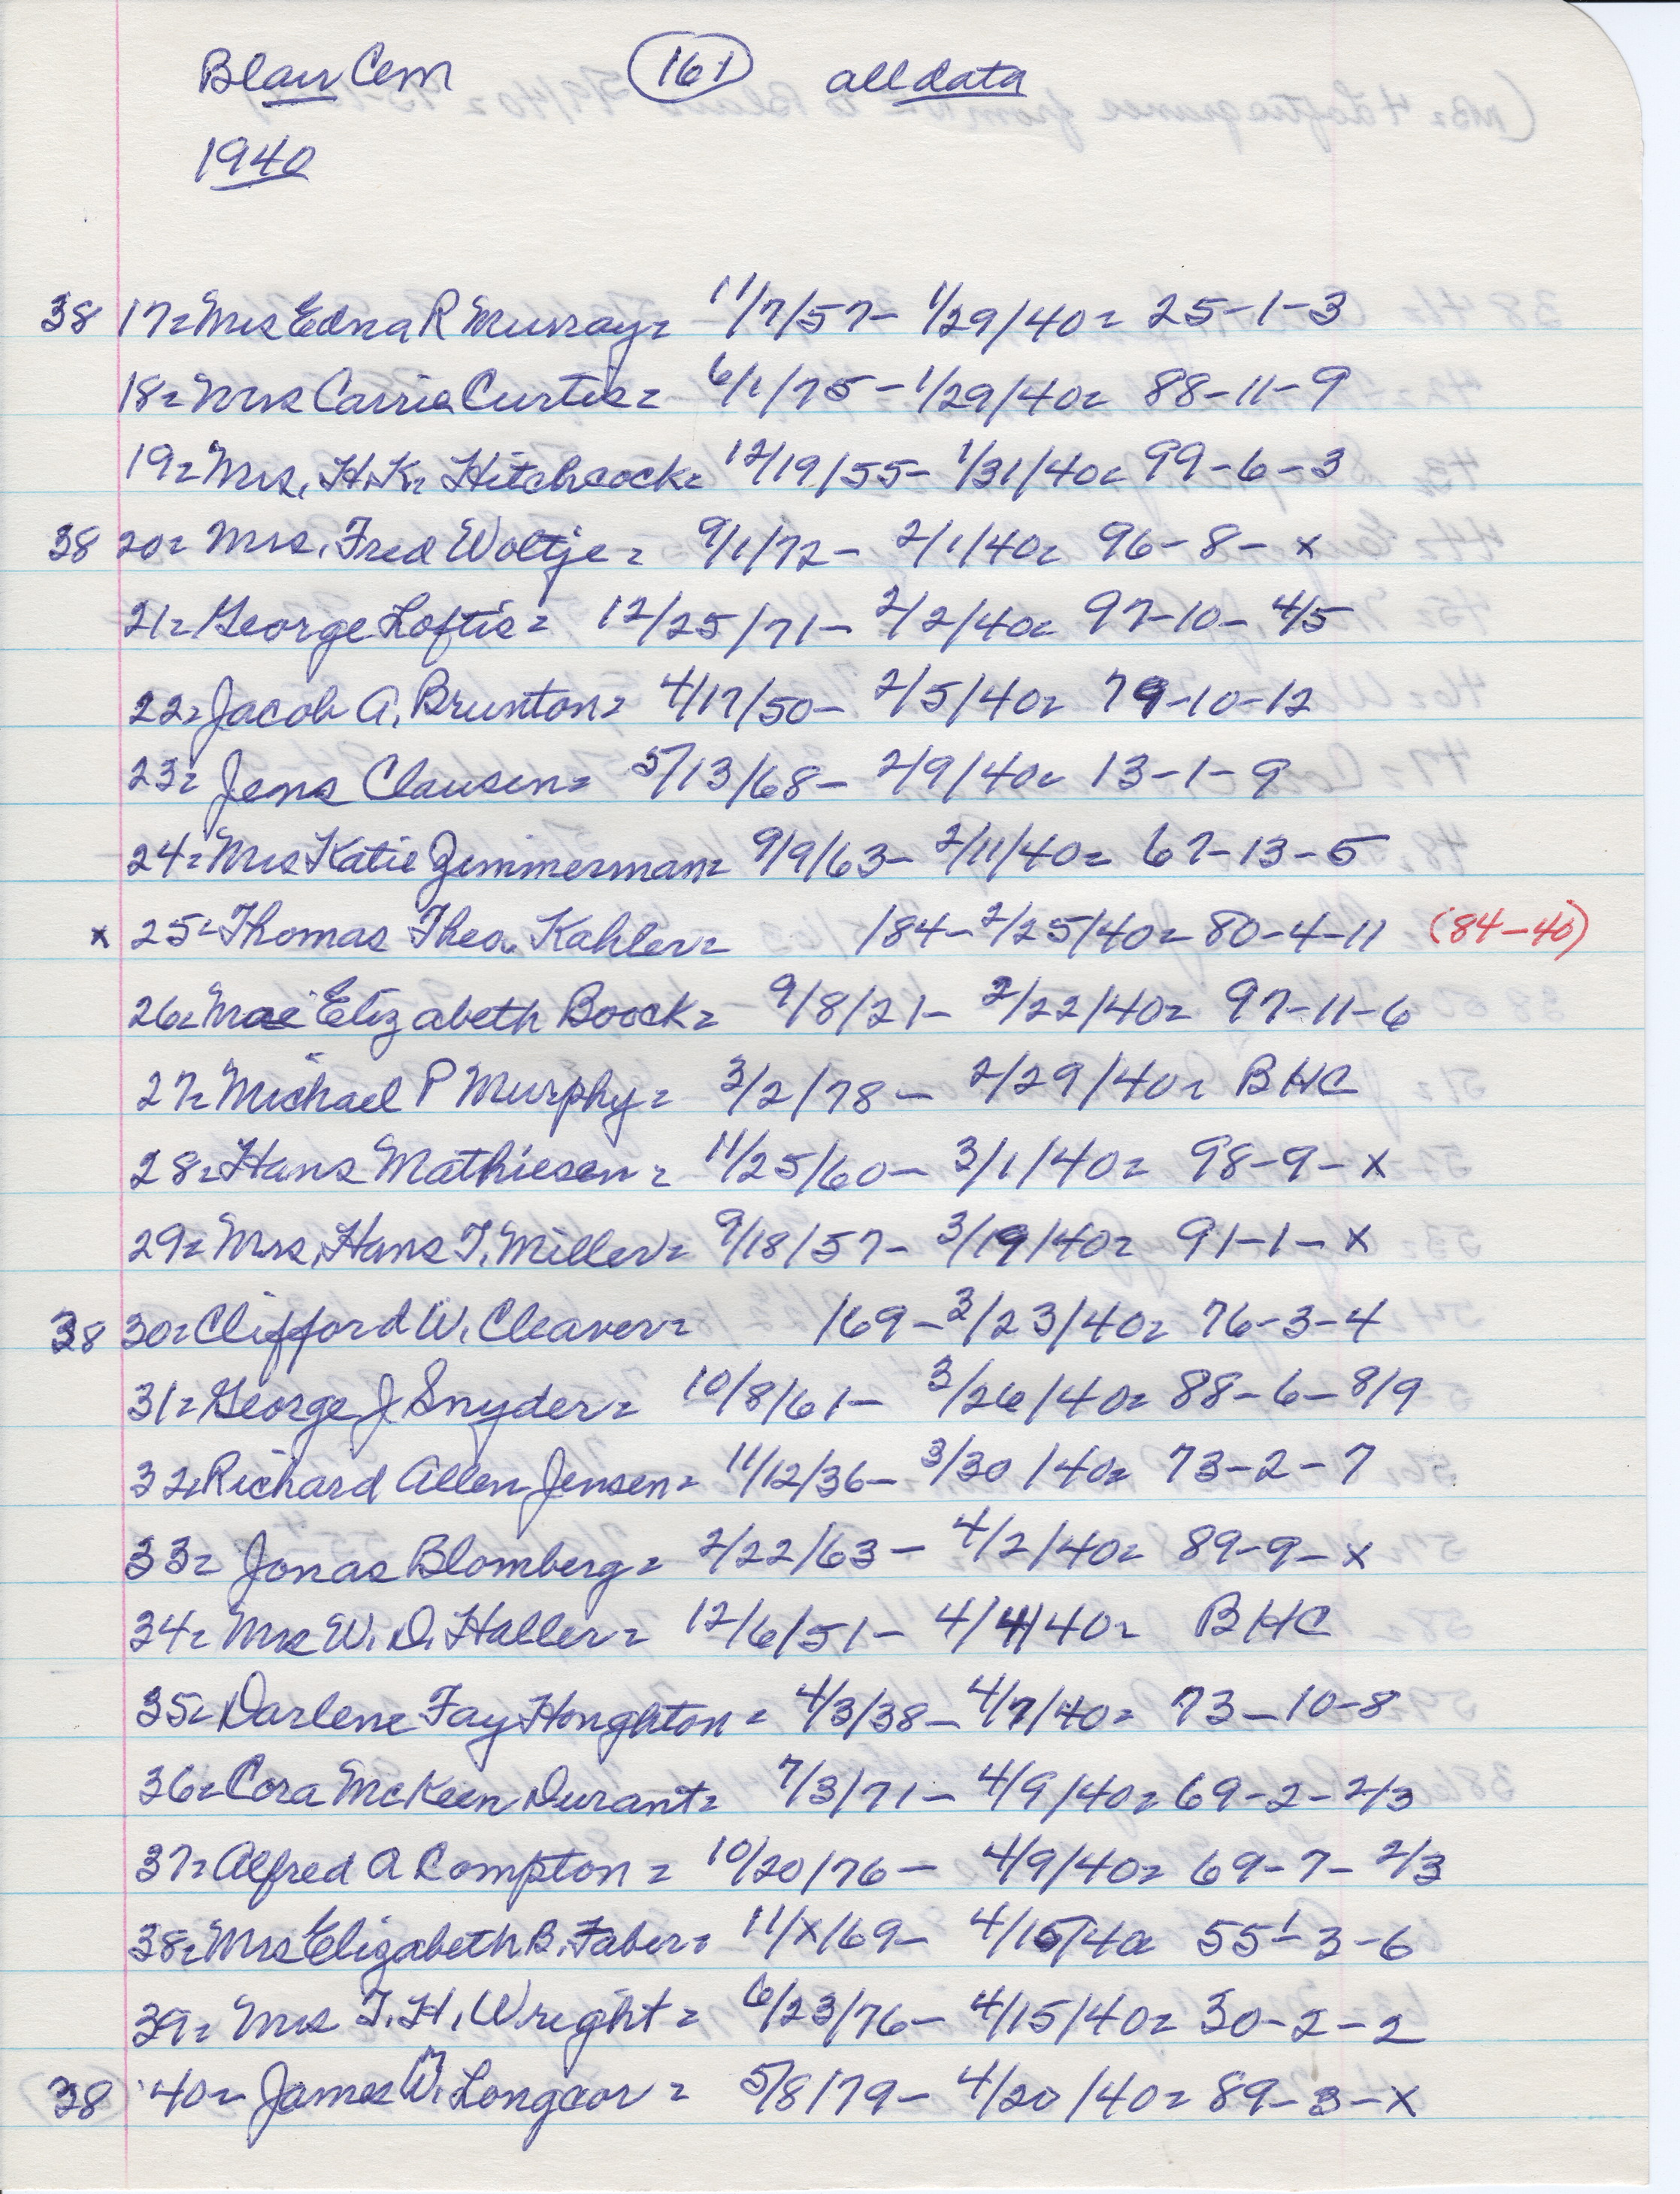 Blair Cem (161) all data
1940
38 17= Mrs Edna R Murray= 11/7/57- 1/29/40= 25-1-3
18= Mrs Carrie Curtis= 6/1/75-1/29/40= 88-11-9
19= Mrs. H.K. Hitchcock= 12/19/55- 1/31/40= 99-6-3
38 20= Mrs. Fred Woltje= 9/1/72- 2/1/40= 96-8-x
21= George Loftis= 12/25/71- 2/2/40= 97-10-4/5
22= Jacob A. Brunton= 4/17/50- 2/5/40= 79-10-12
23= Jens Clausen= 5/13/68- 2/9/40= 13-1-9
24= Mrs Katie Zimmerman= 9/9/63- 2/11/40= 67-13-5
x 25= Thomas Theo. Kahler= /84-2/25/40= 80-4-11 (84-40)
26= Mae Elizabeth Boock= 9/8/21- 2/22/40= 97-11-6
27= Michael P Murphy= 3/2/78- 2/29/40= BHC
28= Hans Mathiesen= 11/25/60- 3/1/40= 98-9-x
29= Mrs. Hans T. Miller= 9/18/57- 3/19/40= 91-1-x
38 30= Clifford W. Cleaver= /69-3/23/40= 76-3-4
31= George J Snyder= 10/8/61- 3/26/40= 88-6-8/9
32= Richard Allen Jensen= 11/12/36- 3/30/40= 73-2-7
33= Jonas Blomberg= 2/22/63- 4/2/40= 89-9-x
34= Mrs W. D. Haller= 12/6/51- 4/4/40= BHC
35= Darlene Fay Houghton= 4/3/38-4/7/40= 73-10-8
36= Cora McKeen Durant= 7/3/71- 4/9/40= 69-2-2/3
37= Alfred A Compton= 10/20/76- 4/9/40= 69-7-2/3
38= Mrs Elizabeth B. Faber= 11/x/69- 4/15/40= 55½-3-6
39= Mrs T. H. Wright= 6/23/76- 4/15/40= 30-2-2
38 40= James W. Longcor= 5/8/79- 4/20/40= 89-3-x